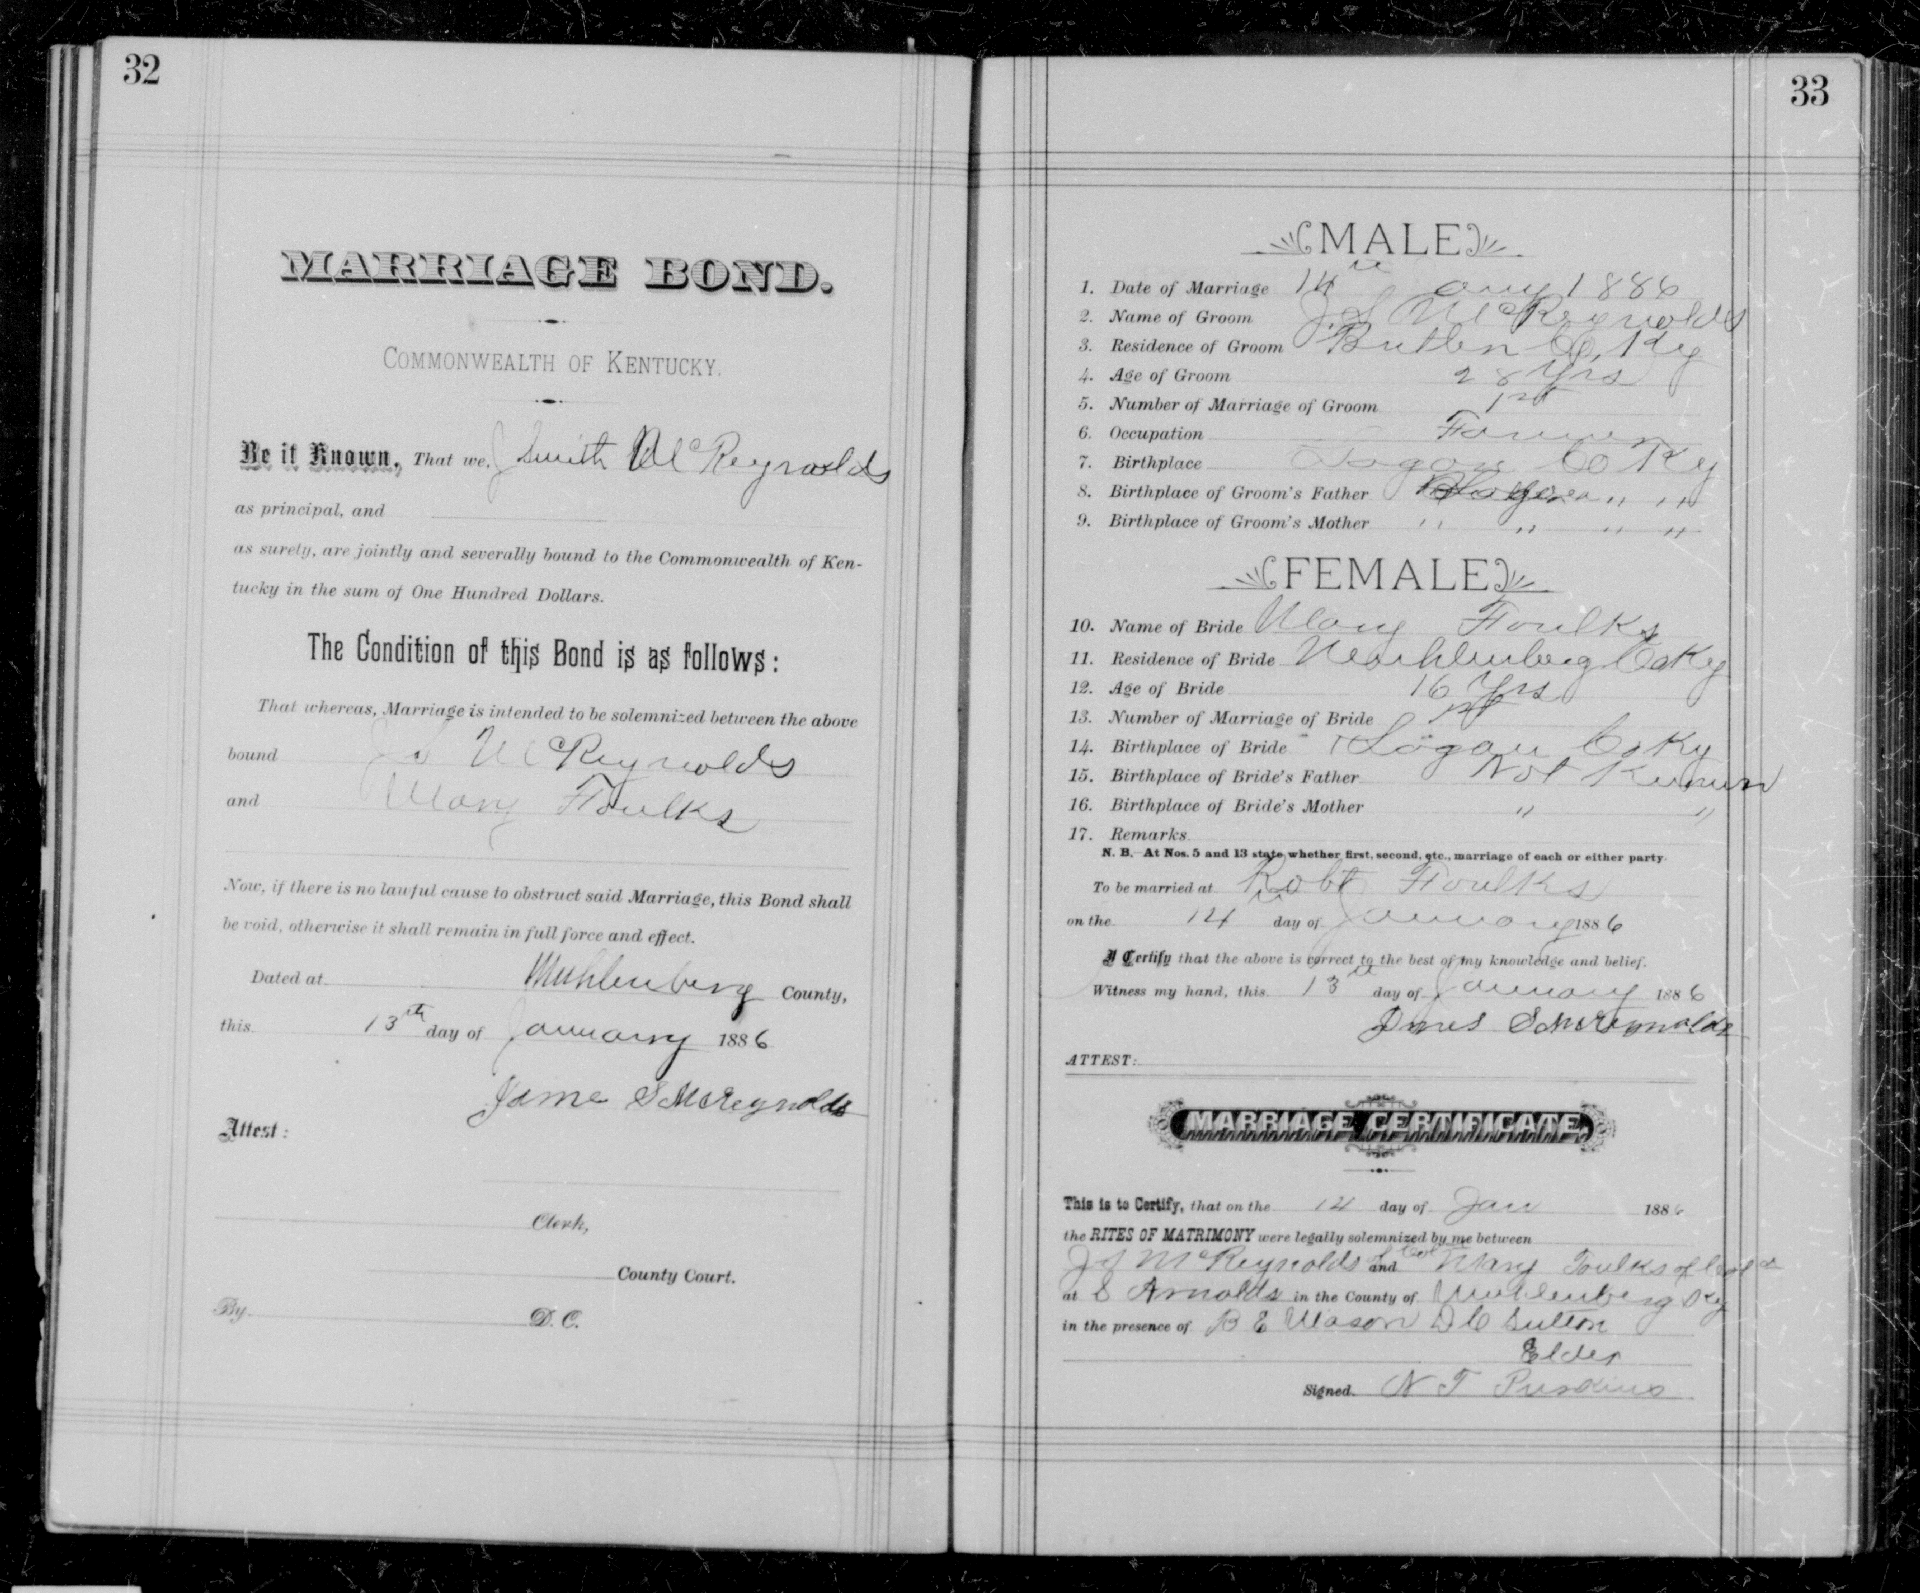 32
MARRIAGE BOND.
COMMONWEALTH OF KENTUCKY.
Be it Known, That we, J Smith McReynolds
as principal, and
as surety, are jointly and severally bound to the Commonwealth of Ken-
tucky in the sum of One Hundred Dollars.
The Condition of this Bond is as follows:
That whereas, Marriage is intended to be solemnized between the above
bound J S McReynolds
and Mary Foulks
Now, if there is no lawful cause to obstruct said Marriage, this Bond shall
be void, otherwise it shall remain in full force and effect.
Dated at Muhlenberg County,
this 13th day of January 1886
Jame S McReynolds
Attest:
Clerk,
County Court.
By D. C.
33
MALE
1. Date of Marriage 14th 1886
2. Name of Groom J S McReynolds
3. Residence of Groom Butler Co, Ky
4. Age of Groom 28 Yrs
5. Number of Marriage of Groom 1st
6. Occupation Farmer
7. Birthplace Logan Co Ky
8. Birthplace of Groom's Father " "
9. Birthplace of Groom's Mother " " " "
FEMALE
10. Name of Bride Mary Foulks
11. Residence of Bride Muhlenberg Co Ky
12. Age of Bride 16 Yrs
13. Number of Marriage of Bride 1st
14. Birthplace of Bride Logan Co Ky
15. Birthplace of Bride's Father Not Known
16. Birthplace of Bride's Mother " "
17. Remarks
N. B. At Nos. 5 and 13 state whether first, second, etc., marriage of each or either party.
To be married at Robt Foulks
on the 14th day of January 1886
I Certify that the above is correct to the best of my knowledge and belief.
Witness my hand, this 13th day of January 1886
James S McReynolds
ATTEST:
MARRIAGE CERTIFICATE.
This is to Certify, that on the 14 day of Jan 1886
the RITES OF MATRIMONY were legally solemnized by me between
J S McReynolds of and Mary Foulks of
at S Arnolds in the County of Muhlenberg Ky
in the presence of B E Mason D C Sutton
Elder
Signed. N T